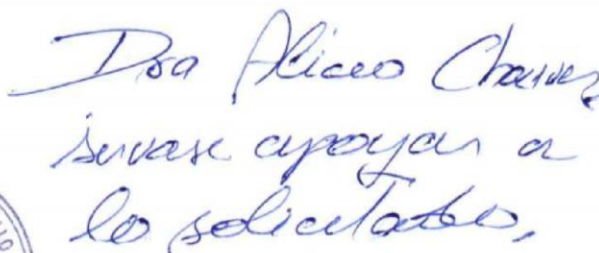 Dra Alicia Chavez
sirvase apoyar a
lo solicitado,